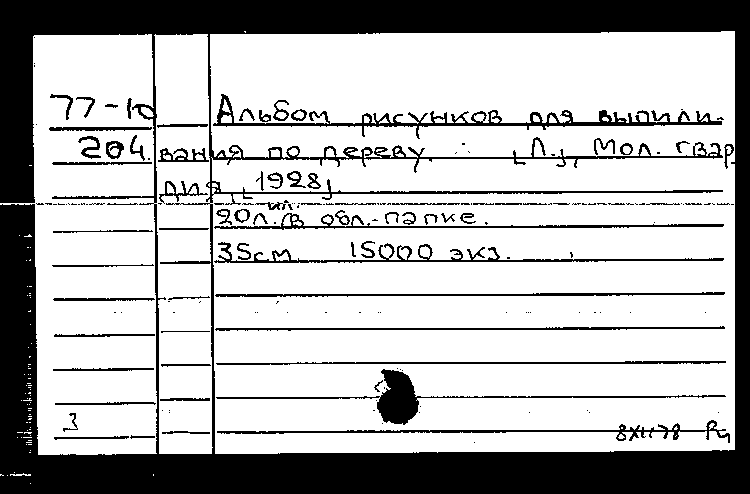 77-Ю Альбом рисунков для выпили-
204 вания по дереву. [Л.], Мол. гвар
дия, [1928].
20 л. ил. (В обл.-папке.
35см 15000 экз.
3 8XII78